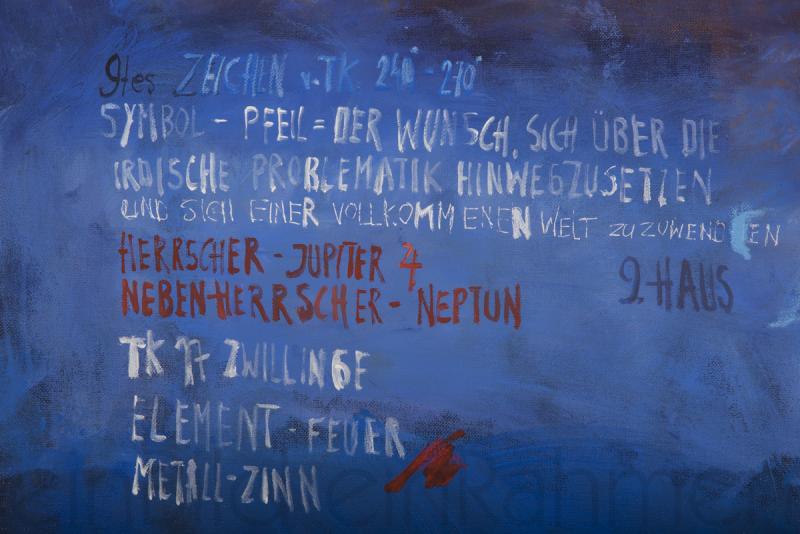 9tes ZEICHEN v. TK. 240° - 270°
SYMBOL - PFEIL = DER WUNSCH, SICH ÜBER DIE
IRDISCHE PROBLEMATIK HINWEGZUSETZEN
UND SICH EINER VOLLKOMMENEN WELT ZUZUWENDEN
HERRSCHER - JUPITER ♃
NEBENHERRSCHER - NEPTUN
9. HAUS
TK ZWILLINGE
ELEMENT - FEUER
METALL - ZINN